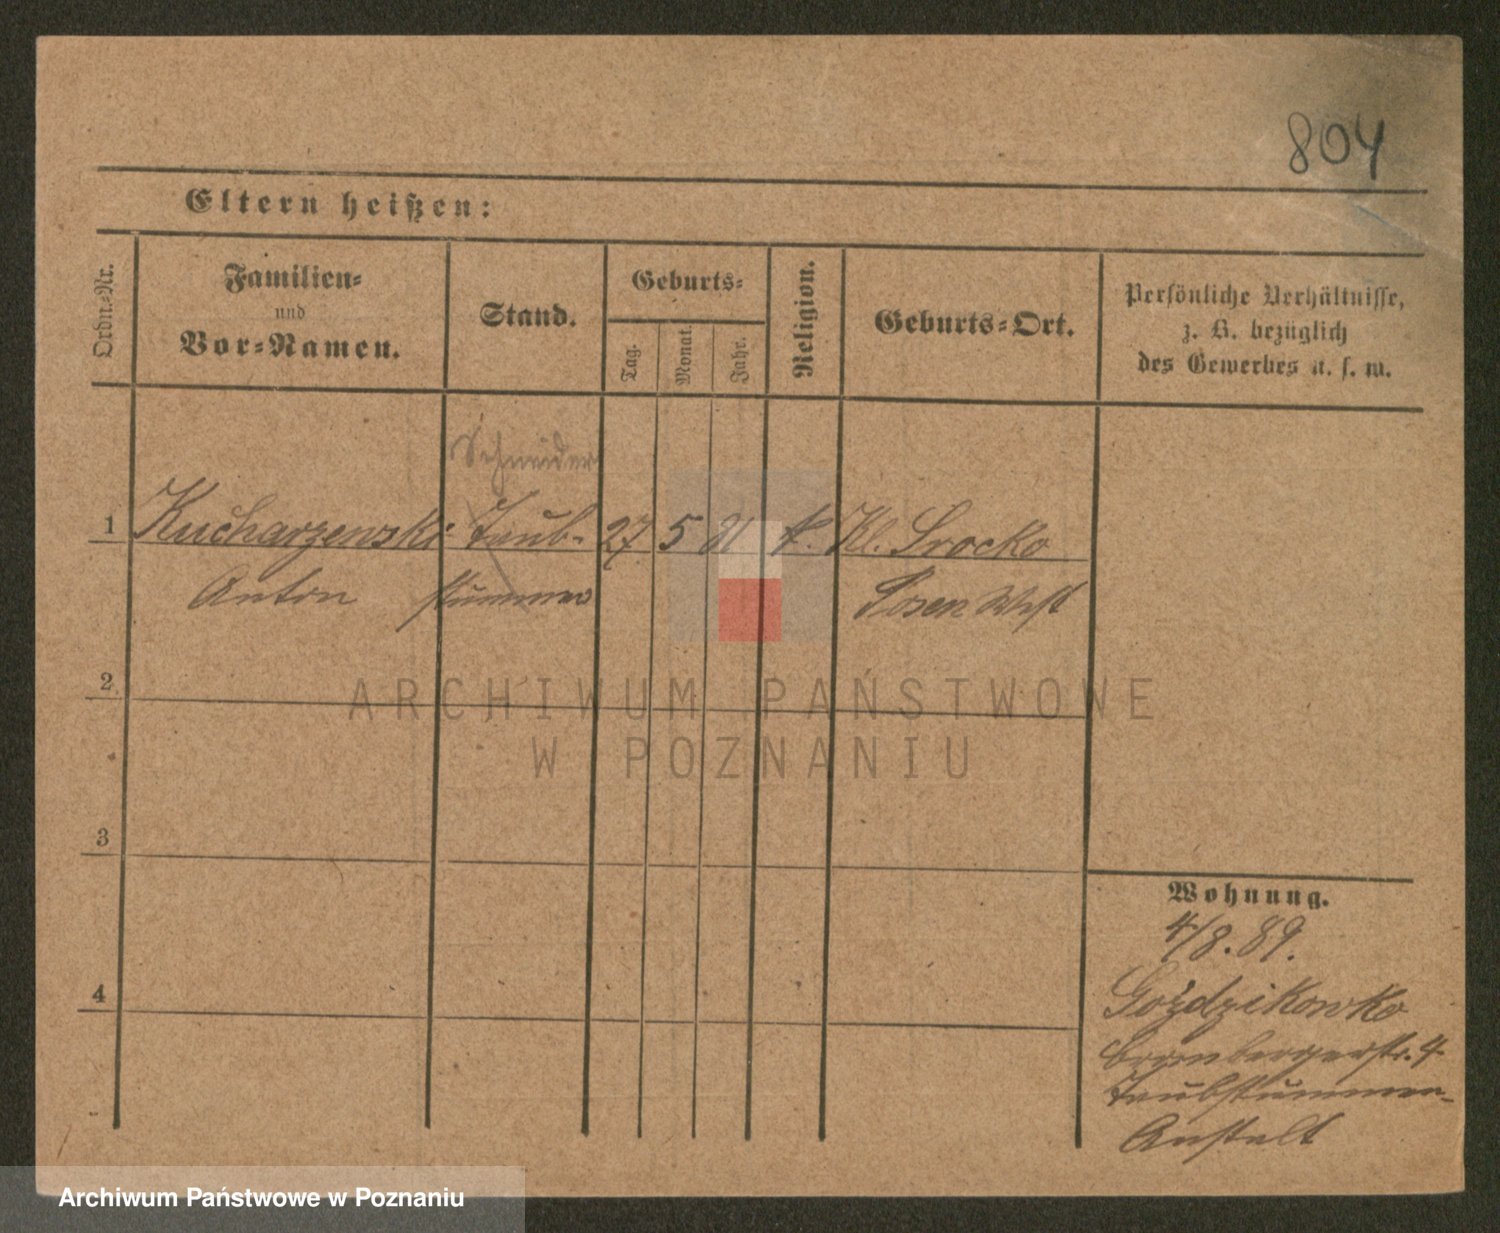 804
Eltern heißen:
Ordn.-Nr.
Familien-
und
Vor-Namen.
Stand.
Geburts-
Tag.
Monat.
Jahr.
Religion.
Geburts-Ort.
Persönliche Verhältnisse,
z. B. bezüglich
des Gewerbes u. s. w.
Schneider
1 Kucharzewski Taub- 27 5 k. Kl. Srocko
Anton stummer Posen West
2
3
4
Wohnung.
4/8. 89.
Goździkowko
Brombergerstr. 4.
Taubstummen-
Anstalt
ARCHIWUM PAŃSTWOWE
W POZNANIU
Archiwum Państwowe w Poznaniu